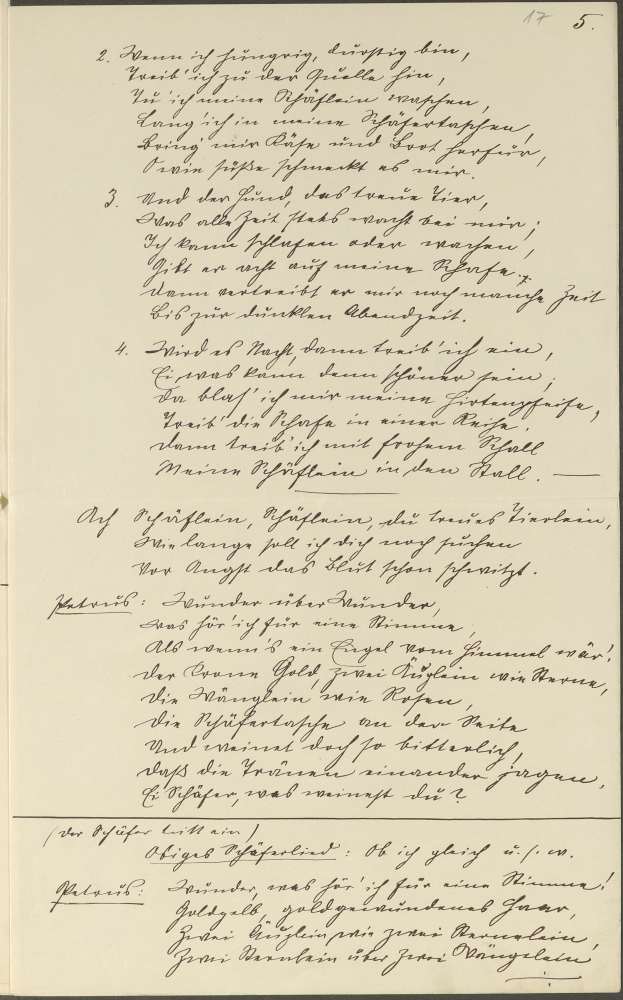 17 5.
2. Wenn ich hungrig, durstig bin,
Treib' ich zu der Quelle hin,
Tu' ich meine Schäflein waschen,
Lang' ich in meine Schäfertaschen,
Bring' mir Käse und Brot herfür,
O wie süße schmeckt es mir.
3. Und der Hund, das treue Tier,
Was alle Zeit stets wacht bei mir;
Ich kann schlafen oder wachen,
Gibt er acht auf meine Schafe;
Dann vertreibt er mir noch manche Zeit
Bis zur dunklen Abendzeit.
4. Wird es Nacht, dann treib' ich ein,
Ei, was kann denn schöner sein;
Da blas' ich mir meine Hirtenpfeife,
Treib' die Schafe in einer Reihe.
Dann treib' ich mit frohem Schall
Meine Schäflein in den Stall. —
Ach Schäflein, Schäflein, du treues Tierlein,
Wie lange soll ich dich noch suchen
Vor Angst das Blut schon schwitzt.
Petrus: Wunder über Wunder,
Was hör' ich für eine Stimme,
Als wenn's ein Engel vom Himmel wär'!
Der Krone Gold, zwei Äuglein wie Sterne,
Die Wänglein wie Rosen,
Die Schäfertasche an der Seite
Und weinet doch so bitterlich,
Daß die Tränen einander jagen,
Ei Schäfer, was weinest du?
(Der Schäfer tritt ein)
Obiges Schäferlied: Ob ich gleich u. s. w.
Petrus: Wunder, was hör' ich für eine Stimme!
Goldgelb, goldgewundenes Haar,
Zwei Äuglein wie zwei Sternelein,
Zwei Sternlein über zwei Wängelein